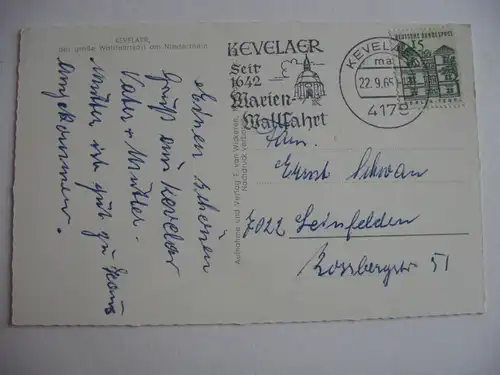 KEVELAER,
der große Wallfahrtsort am Niederrhein
einen schönen
Gruß aus Kevelar
Vater + Mutter.
Mutter ist gut zu Haus
angekommen.
Aufnahme und Verlag E. van Wickeren,
Nachdruck verboten
KEVELAER
Seit
1642
Marien-
Wallfahrt
KEVELAER
22.9.65
4178
DEUTSCHE BUNDESPOST
15
Fam.
Ernst Schwan
7022 Leinfelden
Rossbergstr 51